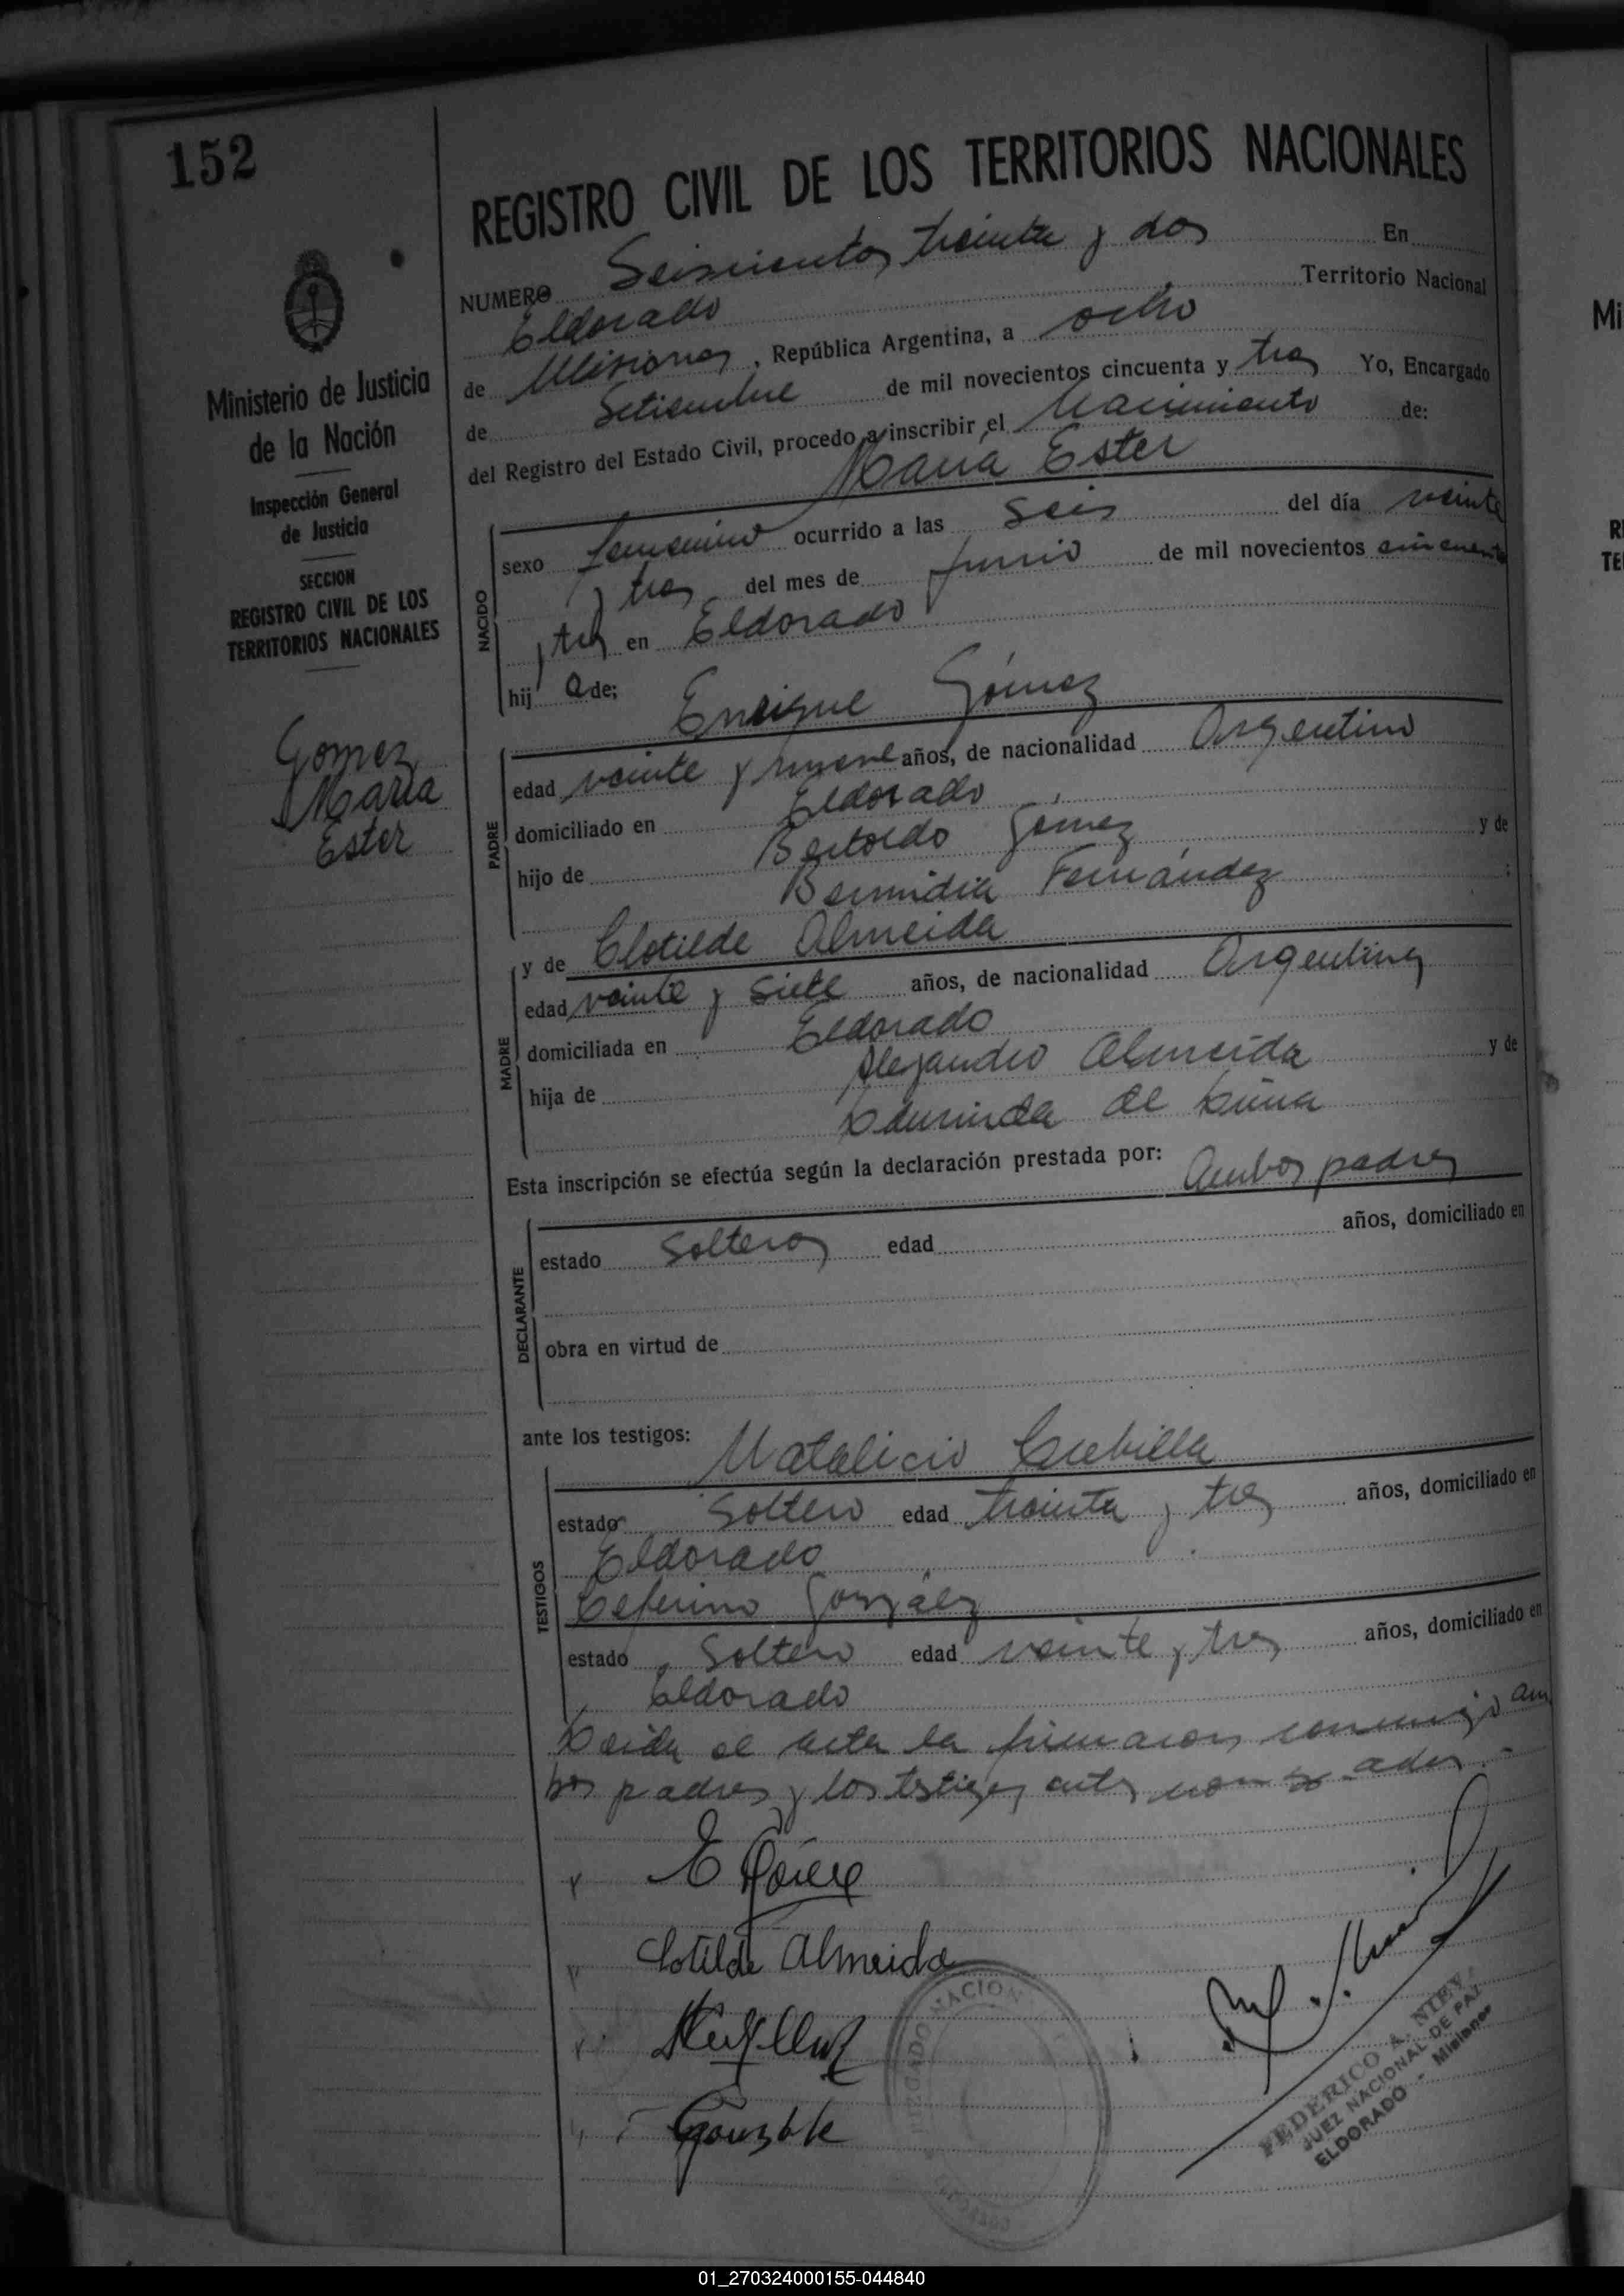 152
REGISTRO CIVIL DE LOS TERRITORIOS NACIONALES
Ministerio de Justicia
de la Nación
Inspección General
de Justicia
SECCION
REGISTRO CIVIL DE LOS
TERRITORIOS NACIONALES
Gomez
María
Ester
NUMERO Seiscientos treinta y dos En
Eldorado Territorio Nacional
de Misiones, República Argentina, a ocho
de Setiembre de mil novecientos cincuenta y tres Yo, Encargado
del Registro del Estado Civil, procedo a inscribir el Nacimiento de:
Maria Ester
NACIDO
sexo femenino ocurrido a las seis del día veinte
y tres del mes de Junio de mil novecientos cincuenta
y tres en Eldorado
hij a de;
Enrique Gómez
PADRE
edad veinte y nueve años, de nacionalidad Argentino
domiciliado en Eldorado
hijo de Bertoldo Gómez y de
Fernández
y de Clotilde Almeida
MADRE
edad veinte y siete años, de nacionalidad Argentina
domiciliada en Eldorado
hija de Alejandro Almeida y de
de Lima
Esta inscripción se efectúa según la declaración prestada por: Ambos padres
DECLARANTE
estado Solteros edad años, domiciliado en
obra en virtud de
ante los testigos:
Natalicio Cubilla
TESTIGOS
estado Soltero edad treinta y tres años, domiciliado en
Eldorado
Ceferino González
estado Soltero edad veinte y tres años, domiciliado en
Eldorado
Leida el acta la firmaron conmigo am
bos padres y los testigos antes nombrados.
E Gómez
Clotilde Almeida
JUZGADO NACION
FEDERICO A. NIEV
JUEZ NACIONAL DE PAZ
ELDORADO - Misiones
Mi
R
TE
01_270324000155-044840